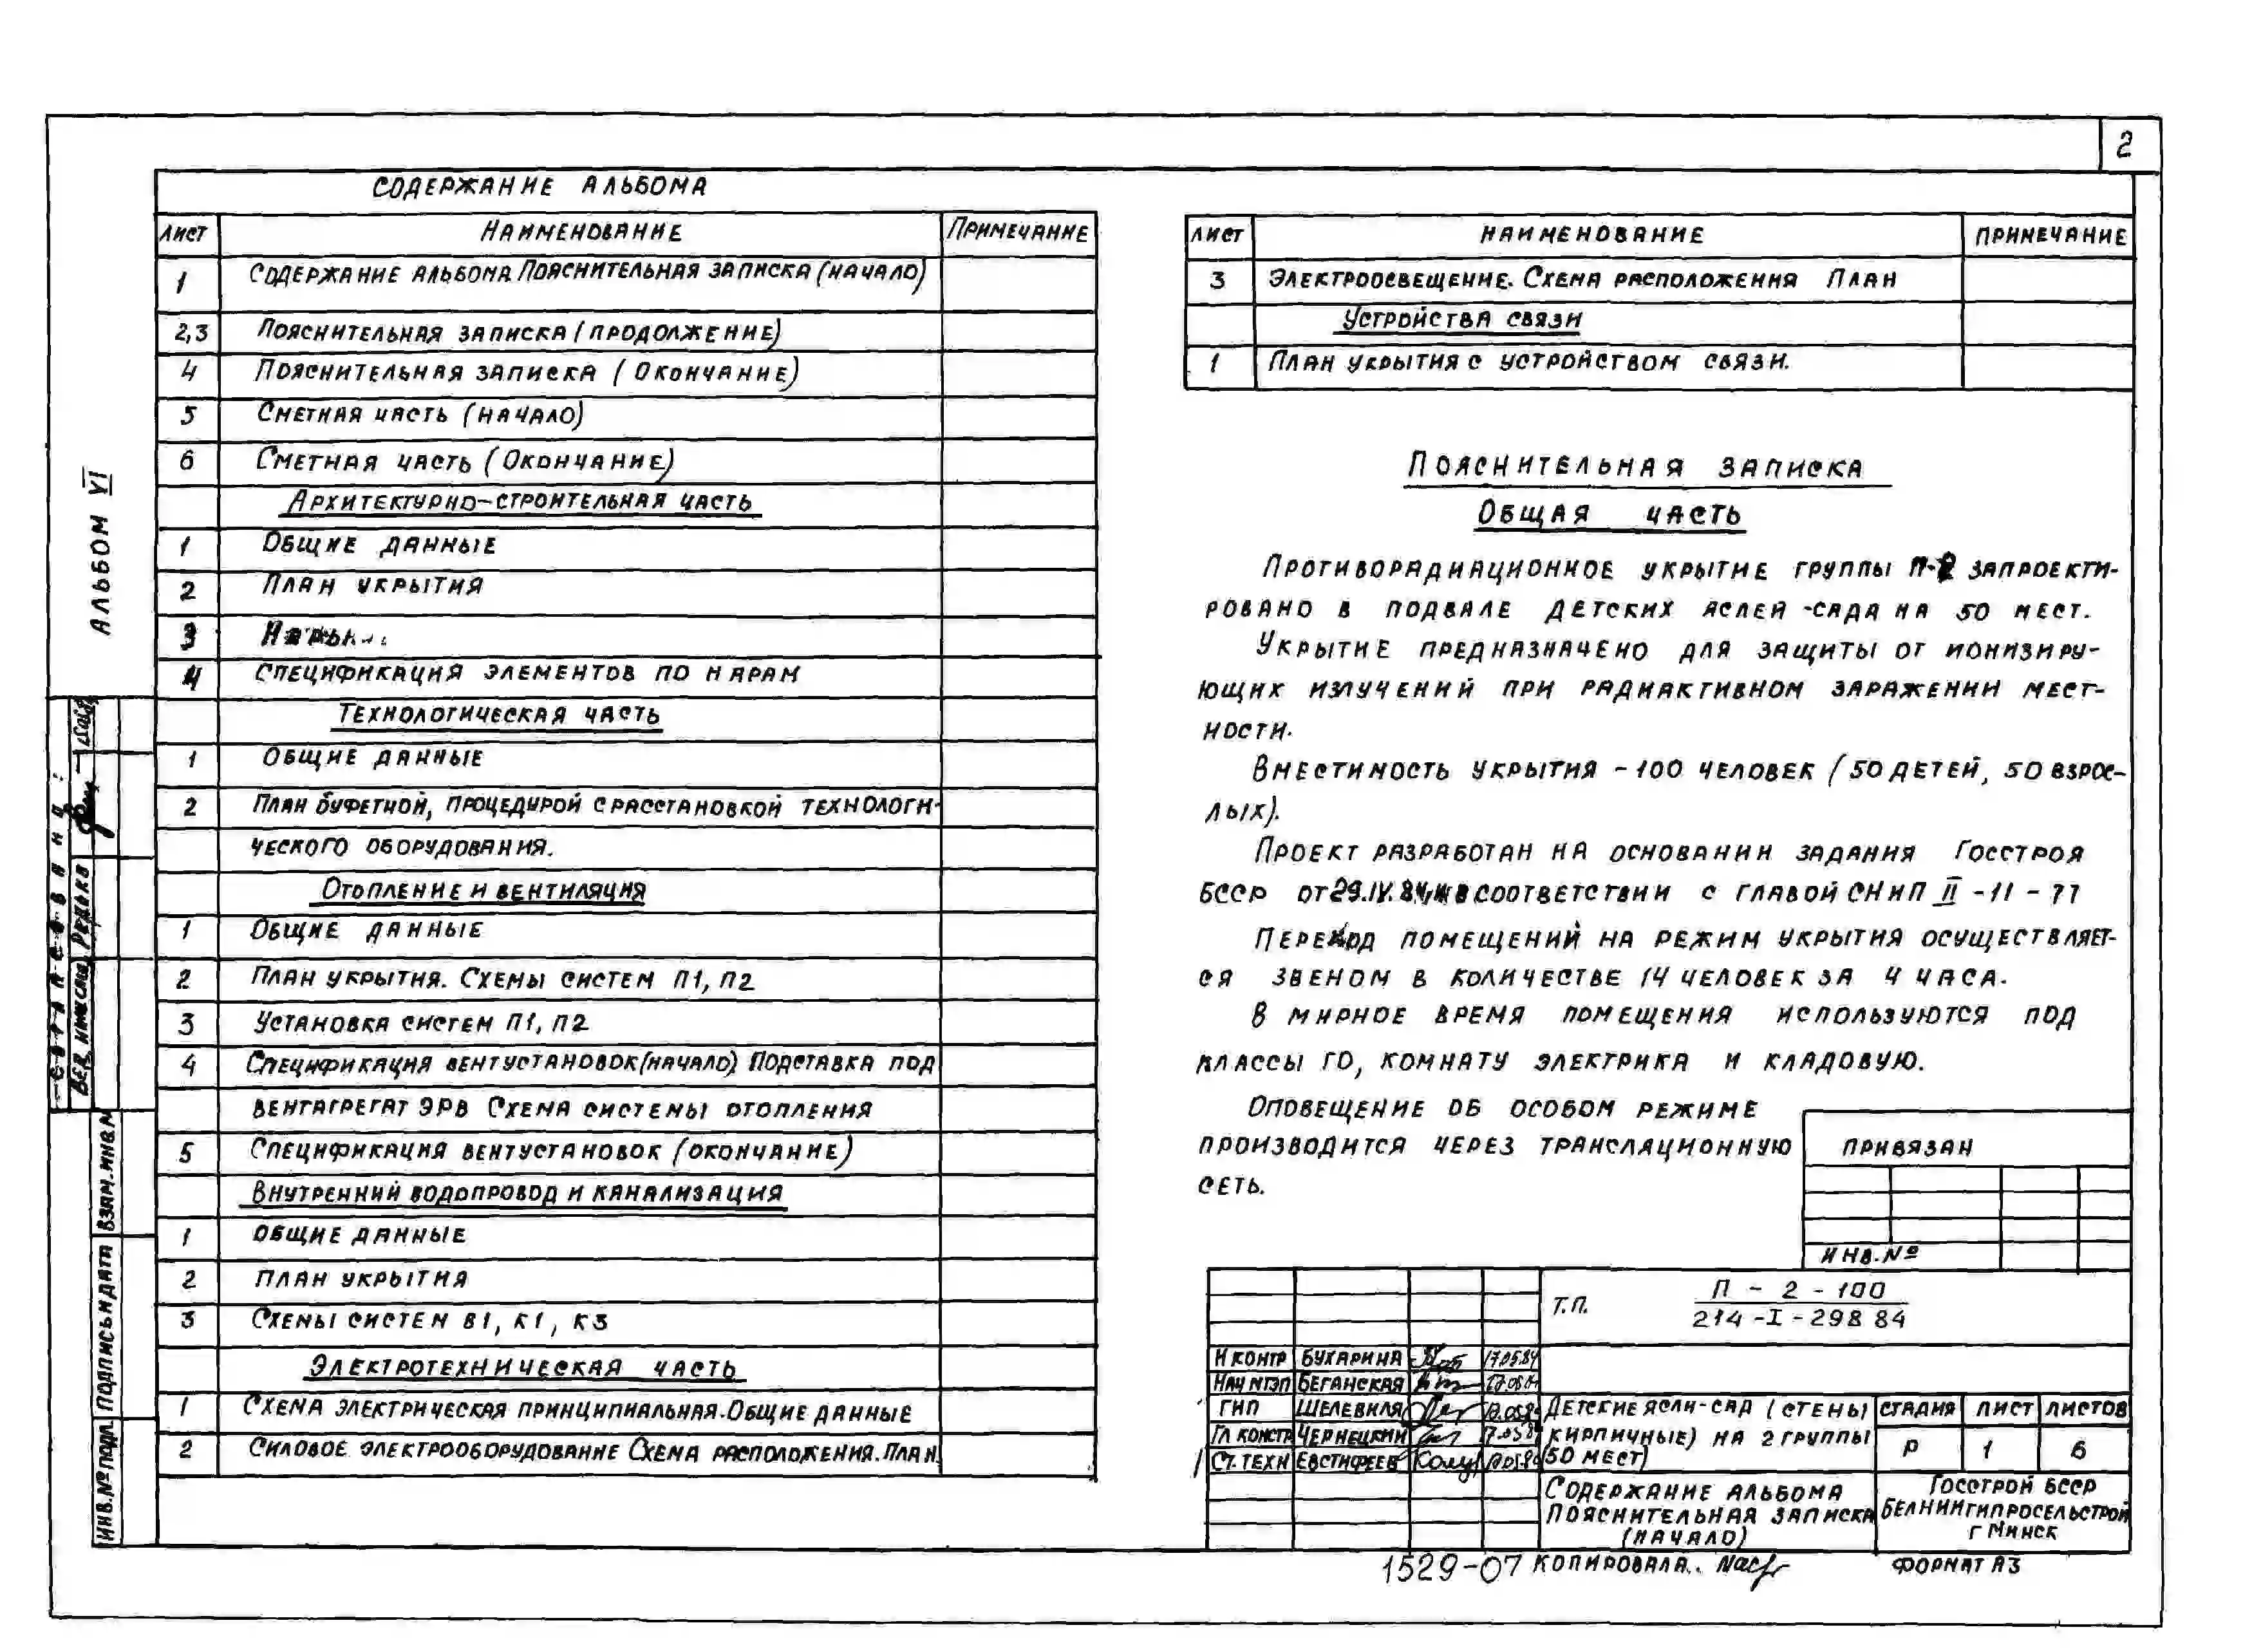 2
СОДЕРЖАНИЕ АЛЬБОМА
ЛИСТ НАИМЕНОВАНИЕ ПРИМЕЧАНИЕ
1 СОДЕРЖАНИЕ АЛЬБОМА. ПОЯСНИТЕЛЬНАЯ ЗАПИСКА (НАЧАЛО)
2,3 ПОЯСНИТЕЛЬНАЯ ЗАПИСКА (ПРОДОЛЖЕНИЕ)
4 ПОЯСНИТЕЛЬНАЯ ЗАПИСКА (ОКОНЧАНИЕ)
5 СМЕТНАЯ ЧАСТЬ (НАЧАЛО)
6 СМЕТНАЯ ЧАСТЬ (ОКОНЧАНИЕ)
АРХИТЕКТУРНО-СТРОИТЕЛЬНАЯ ЧАСТЬ
1 ОБЩИЕ ДАННЫЕ
2 ПЛАН УКРЫТИЯ
3
4 СПЕЦИФИКАЦИЯ ЭЛЕМЕНТОВ ПО МАРАМ
ТЕХНОЛОГИЧЕСКАЯ ЧАСТЬ
1 ОБЩИЕ ДАННЫЕ
2 ПЛАН БУФЕТНОЙ, ПРОЦЕДУРОЙ С РАССТАНОВКОЙ ТЕХНОЛОГИ-
ЧЕСКОГО ОБОРУДОВАНИЯ.
ОТОПЛЕНИЕ И ВЕНТИЛЯЦИЯ
1 ОБЩИЕ ДАННЫЕ
2 ПЛАН УКРЫТИЯ. СХЕМЫ СИСТЕМ П1, П2
3 УСТАНОВКА СИСТЕМ П1, П2
4 СПЕЦИФИКАЦИЯ ВЕНТУСТАНОВОК (НАЧАЛО) ПОДСТАВКА ПОД
ВЕНТАГРЕГАТ ЭРВ СХЕМА СИСТЕМЫ ОТОПЛЕНИЯ
5 СПЕЦИФИКАЦИЯ ВЕНТУСТАНОВОК (ОКОНЧАНИЕ)
ВНУТРЕННИЙ ВОДОПРОВОД И КАНАЛИЗАЦИЯ
1 ОБЩИЕ ДАННЫЕ
2 ПЛАН УКРЫТИЯ
3 СХЕМЫ СИСТЕМ В1, К1, К3
ЭЛЕКТРОТЕХНИЧЕСКАЯ ЧАСТЬ
1 СХЕМА ЭЛЕКТРИЧЕСКАЯ ПРИНЦИПИАЛЬНАЯ. ОБЩИЕ ДАННЫЕ
2 СИЛОВОЕ ЭЛЕКТРООБОРУДОВАНИЕ СХЕМА РАСПОЛОЖЕНИЯ. ПЛАН.
ЛИСТ НАИМЕНОВАНИЕ ПРИМЕЧАНИЕ
3 ЭЛЕКТРООСВЕЩЕНИЕ. СХЕМА РАСПОЛОЖЕНИЯ ПЛАН
УСТРОЙСТВА СВЯЗИ
1 ПЛАН УКРЫТИЯ С УСТРОЙСТВОМ СВЯЗИ.
ПОЯСНИТЕЛЬНАЯ ЗАПИСКА
ОБЩАЯ ЧАСТЬ
ПРОТИВОРАДИАЦИОННОЕ УКРЫТИЕ ГРУППЫ П-2 ЗАПРОЕКТИ-
РОВАНО В ПОДВАЛЕ ДЕТСКИХ ЯСЛЕЙ-САДА НА 50 МЕСТ.
УКРЫТИЕ ПРЕДНАЗНАЧЕНО ДЛЯ ЗАЩИТЫ ОТ ИОНИЗИРУ-
ЮЩИХ ИЗЛУЧЕНИЙ ПРИ РАДИАКТИВНОМ ЗАРАЖЕНИИ МЕСТ-
НОСТИ.
ВМЕСТИМОСТЬ УКРЫТИЯ - 100 ЧЕЛОВЕК (50 ДЕТЕЙ, 50 ВЗРОС-
ЛЫХ).
ПРОЕКТ РАЗРАБОТАН НА ОСНОВАНИИ ЗАДАНИЯ ГОССТРОЯ
БССР ОТ 29.IV.84, И В СООТВЕТСТВИИ С ГЛАВОЙ СНиП II - 11 - 77
ПЕРЕВОД ПОМЕЩЕНИЙ НА РЕЖИМ УКРЫТИЯ ОСУЩЕСТВЛЯЕТ-
СЯ ЗВЕНОМ В КОЛИЧЕСТВЕ 14 ЧЕЛОВЕК ЗА 4 ЧАСА.
В МИРНОЕ ВРЕМЯ ПОМЕЩЕНИЯ ИСПОЛЬЗУЮТСЯ ПОД
КЛАССЫ ГО, КОМНАТУ ЭЛЕКТРИКА И КЛАДОВУЮ.
ОПОВЕЩЕНИЕ ОБ ОСОБОМ РЕЖИМЕ
ПРОИЗВОДИТСЯ ЧЕРЕЗ ТРАНСЛЯЦИОННУЮ
СЕТЬ.
ПРИВЯЗАН
ИНВ.№
Т.П. П - 2 - 100
214 - I - 298 84
Н КОНТР БУХАРИНА 17.05.84
НАЧ МТЭП БЕГАНСКАЯ
ГИП ШЕЛЕВИЛЯ
ГЛ КОНСТР ЧЕРНЕЦКИЙ
СТ. ТЕХН ЕВСТИФЕЕВ
ДЕТСКИЕ ЯСЛИ-САД (СТЕНЫ
КИРПИЧНЫЕ) НА 2 ГРУППЫ
(50 МЕСТ)
СТАДИЯ ЛИСТ ЛИСТОВ
Р 1 6
СОДЕРЖАНИЕ АЛЬБОМА
ПОЯСНИТЕЛЬНАЯ ЗАПИСКА
(НАЧАЛО)
ГОССТРОЙ БССР
БЕЛНИИГИПРОСЕЛЬСТРОЙ
Г МИНСК
1529-07 КОПИРОВАЛА: ФОРМАТ А3
АЛЬБОМ VI
СОГЛАСОВАНО:
РЕДЬКО
ВЗАМ.ИНВ.№
ПОДПИСЬ И ДАТА
ИНВ.№ ПОДЛ.